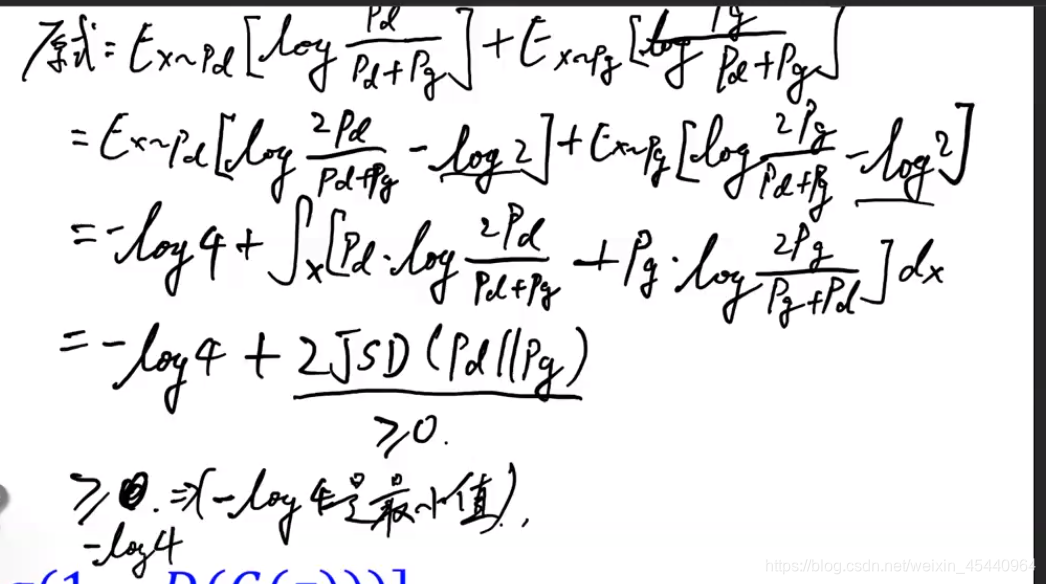 原式 = E_{x~Pd}[log Pd/(Pd+Pg)] + E_{x~Pg}[log Pg/(Pd+Pg)]
= E_{x~Pd}[log 2Pd/(Pd+Pg) - log 2] + E_{x~Pg}[log 2Pg/(Pd+Pg) - log 2]
= -log 4 + ∫_x [Pd · log 2Pd/(Pd+Pg) + Pg · log 2Pg/(Pg+Pd)] dx
= -log 4 + 2JSD(Pd||Pg)
≥0.
≥ 0. ⇒ (-log 4是最小值).
-log 4
D(G(z)))]
https://blog.csdn.net/weixin_45440964